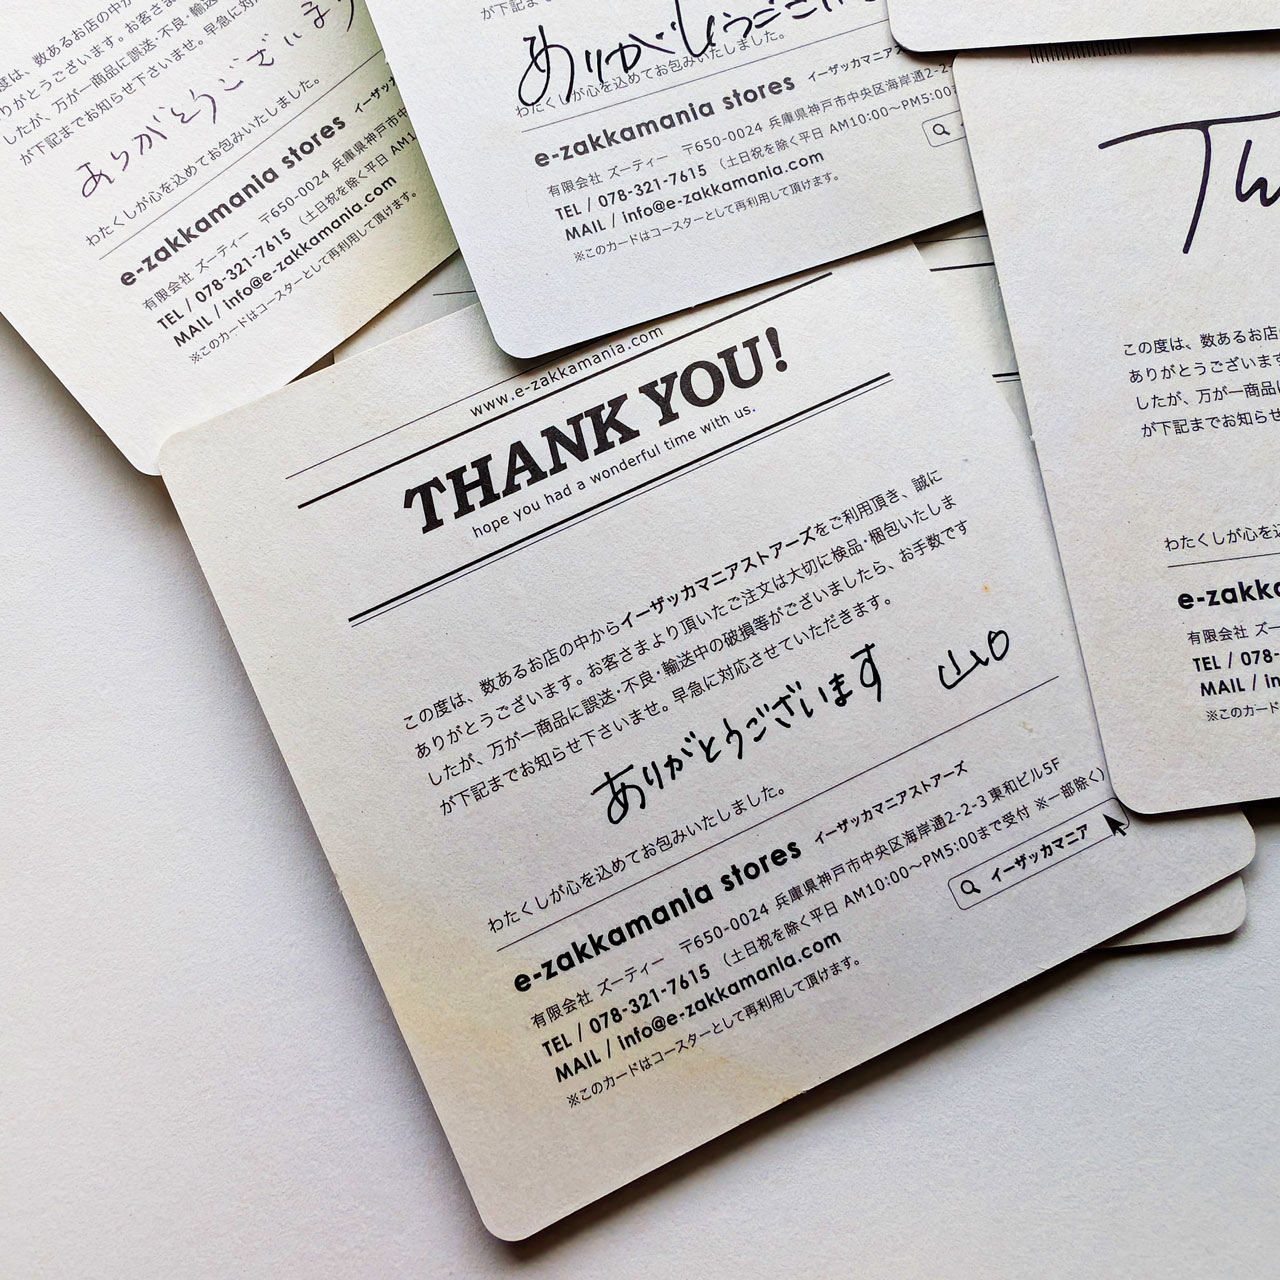 度は、数あるお店の中か
ありがとうございます。お客さま
したが、万が一商品に誤送・不良・輸送
が下記までお知らせ下さいませ。早急に対
ありがとうございます
わたくしが心を込めてお包みいたしました。
e-zakkamania stores イーザッ
有限会社 ズーティー 〒650-0024 兵庫県神戸市中
TEL / 078-321-7615 （土日祝を除く平日 AM1
MAIL / info@e-zakkamania.com
※このカードはコースターとして再利用して頂けます。
が下記
ありがとうござい
わたくしが心を込めてお包みいたしました。
e-zakkamania stores イーザッカマニアス
有限会社 ズーティー 〒650-0024 兵庫県神戸市中央区海岸通2-2-
TEL / 078-321-7615 （土日祝を除く平日 AM10:00〜PM5:00
MAIL / info@e-zakkamania.com
※このカードはコースターとして再利用して頂けます。
www.e-zakkamania.com
THANK YOU!
hope you had a wonderful time with us.
この度は、数あるお店の中からイーザッカマニアストアーズをご利用頂き、誠に
ありがとうございます。お客さまより頂いたご注文は大切に検品・梱包いたしま
したが、万が一商品に誤送・不良・輸送中の破損等がございましたら、お手数です
が下記までお知らせ下さいませ。早急に対応させていただきます。
ありがとうございます 山口
わたくしが心を込めてお包みいたしました。
e-zakkamania stores イーザッカマニアストアーズ
有限会社 ズーティー 〒650-0024 兵庫県神戸市中央区海岸通2-2-3 東和ビル5F
TEL / 078-321-7615 （土日祝を除く平日 AM10:00〜PM5:00まで受付 ※一部除く）
MAIL / info@e-zakkamania.com
イーザッカマニア
※このカードはコースターとして再利用して頂けます。
Th
この度は、数あるお店
ありがとうございます
したが、万が一商品
が下記までお知らせ
わたくしが心を込
e-zakka
有限会社 ズー
TEL / 078-
MAIL / in
※このカード